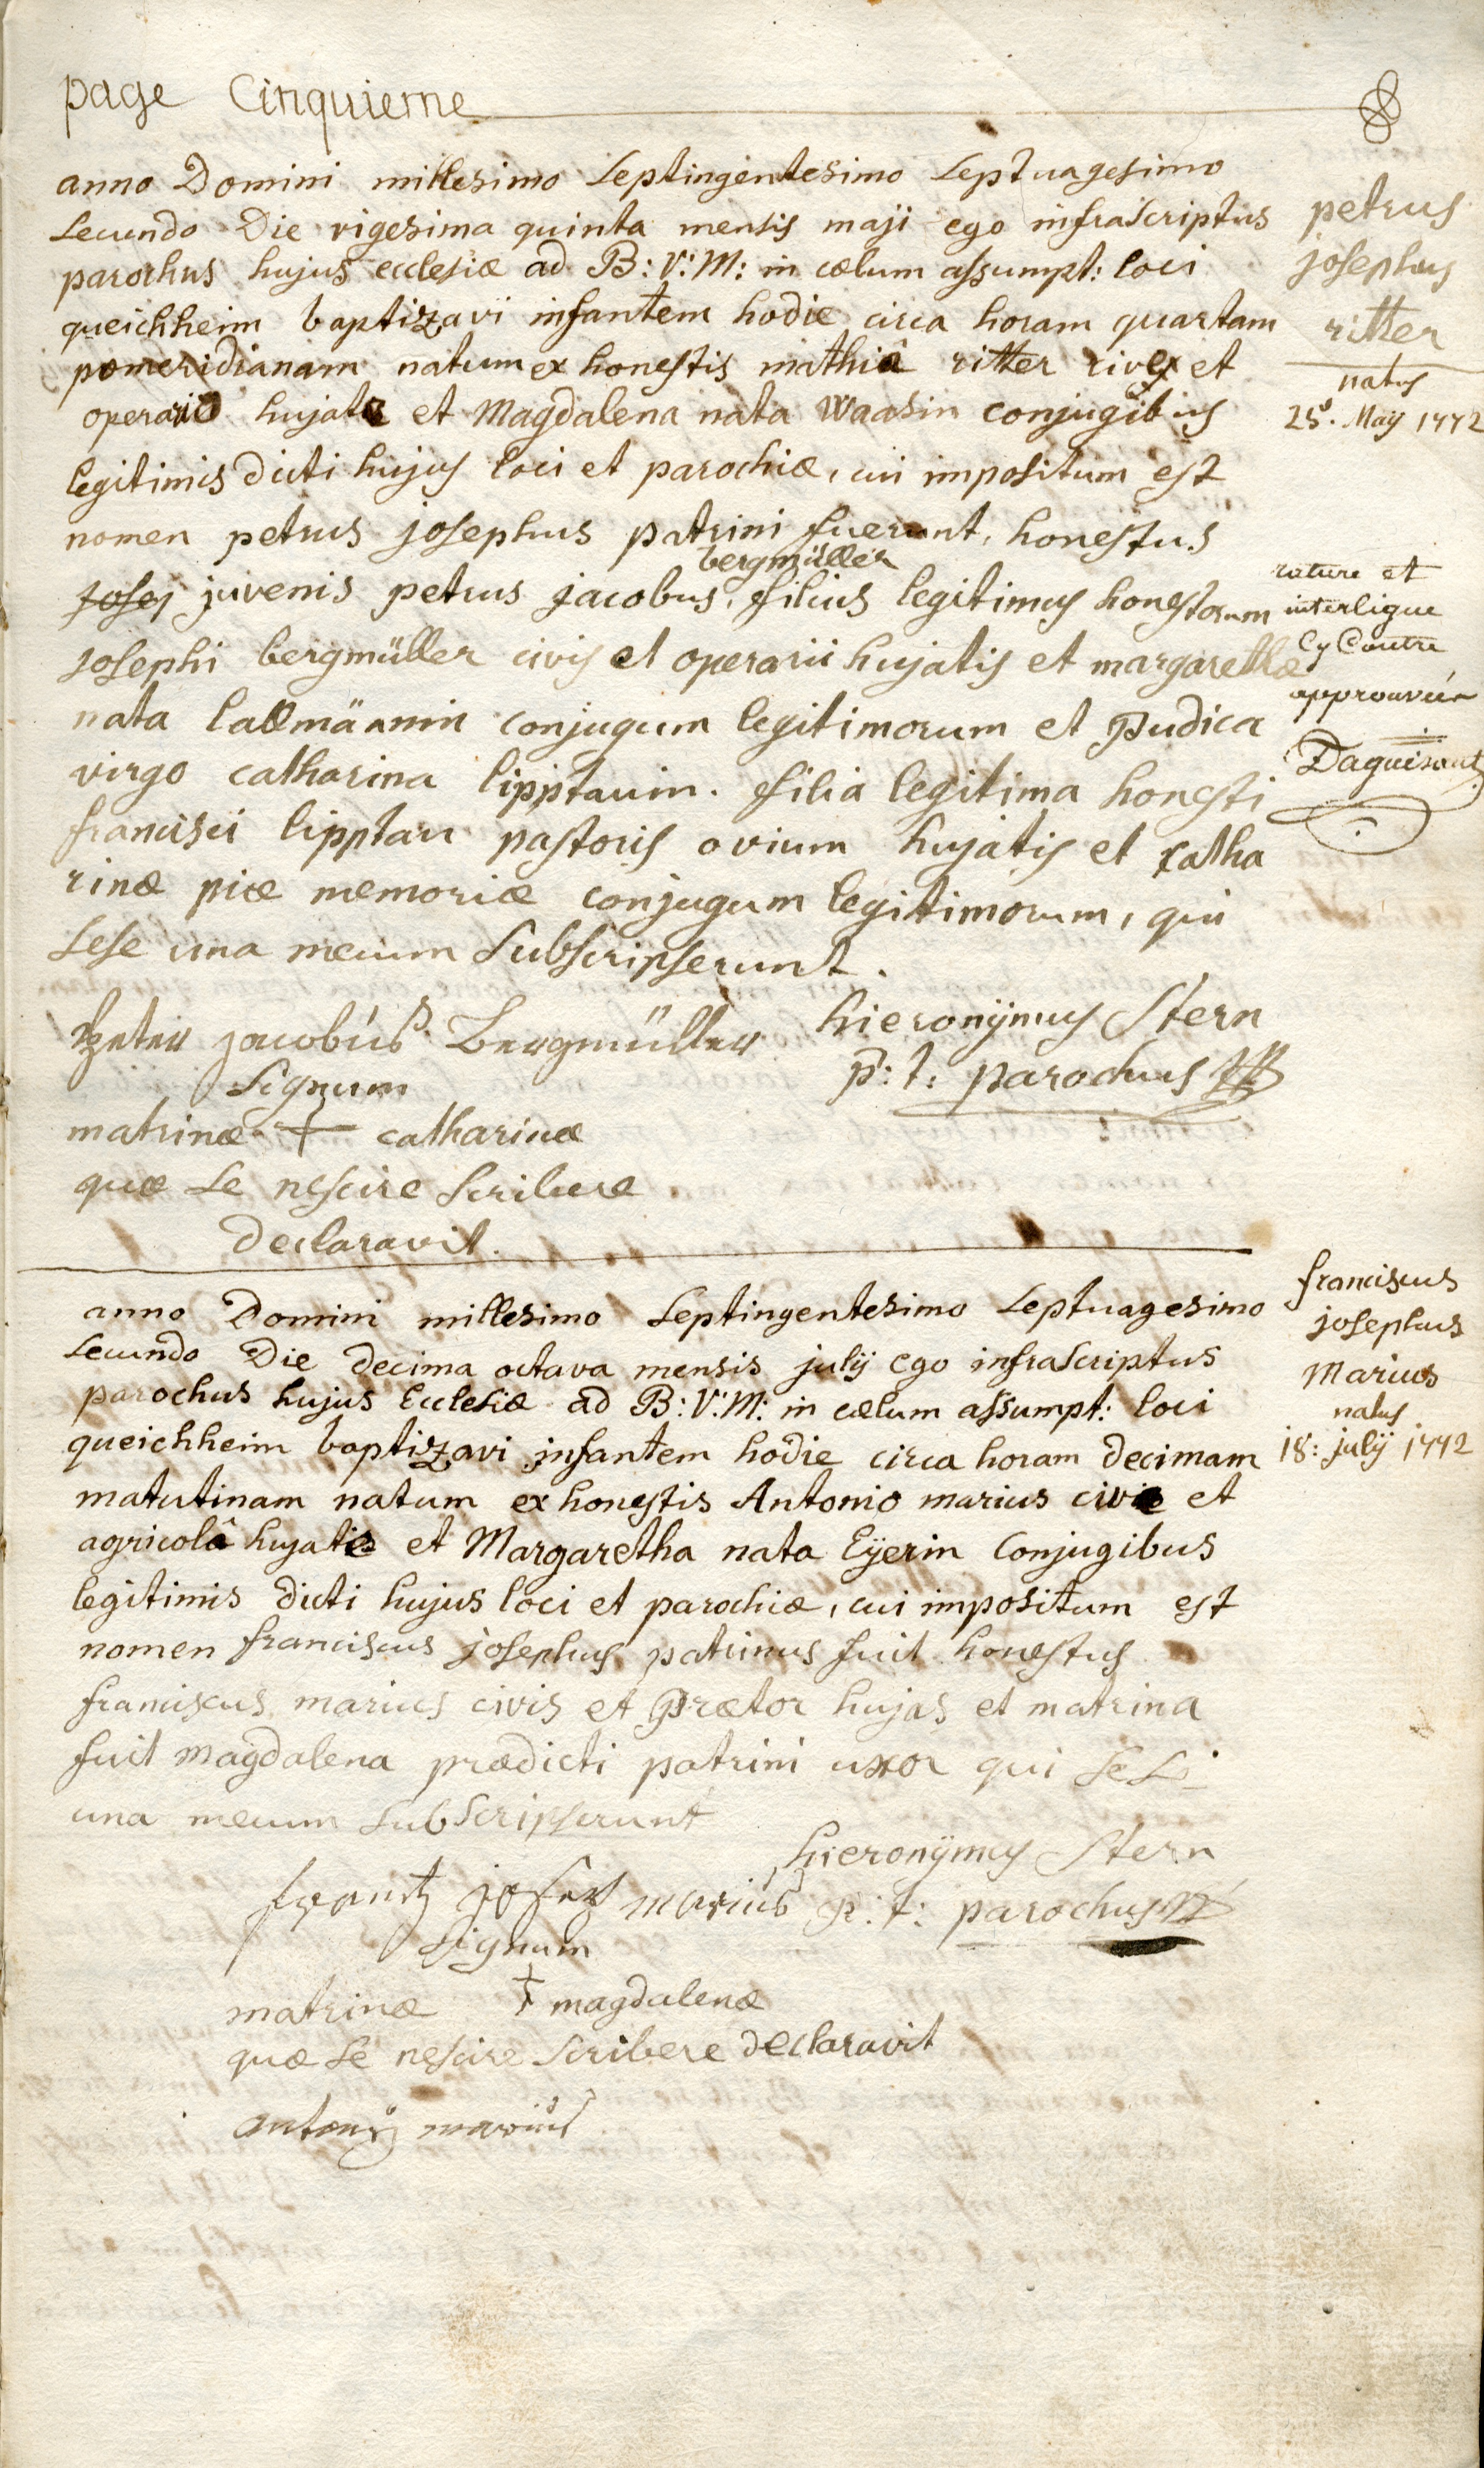 page Cinquieme
anno Domini millesimo Septingentesimo Septuagesimo
Secundo Die vigesima quinta mensis maji ego infrascriptus
parochus hujus ecclesiæ ad B: V: M: in cælum assumpt: loci
queichheim baptizavi infantem hodie circa horam quartam
pomeridianam natum ex honestis mathiâ ritter cive et
operario hujate et Magdalena nata Waasin conjugibus
legitimis dicti hujus loci et parochiæ, cui impositum est
nomen petrus josephus patrini fuerunt, honestus
bergmüller
josej juvenis petrus jacobus, filius legitimus honestorum
josephi bergmüller civis et operarii hujatis et margarethæ
nata lallmännin conjugum legitimorum et Pudica
virgo catharina lipptauin. filia legitima honesti
francisci lipptau pastoris ovium hujatis et catha
rinæ piæ memoriæ conjugum legitimorum, qui
Sese una mecum Subscripserunt.
petrus
josephus
ritter
natus
25. May 1772
rature et
interligue
Cy Contre
approuvée
Daguisant
Peter jacobus Bergmüller
hieronÿmus Stern
p: t: parochus
Signum
matrinæ + catharinæ
quæ Se nescire Scribere
declaravit.
anno Domini millesimo Septingentesimo Septuagesimo
Secundo Die decima octava mensis julij ego infrascriptus
parochus hujus Ecclesiæ ad B: V: M: in cælum assumpt: loci
queichheim baptizavi infantem hodie circa horam decimam
matutinam natum ex honestis Antonio marius cive et
agricolâ hujate et Margaretha nata Eÿerin Conjugibus
legitimis dicti hujus loci et parochiæ, cui impositum est
nomen franciscus josephus patrinus fuit honestus
franciscus marius civis et Prætor hujas et matrina
fuit magdalena prædicti patrini uxor qui Sese
una mecum Subscripserunt
franciscus
josephus
Marius
natus
18: julij 1772
hieronÿmus Stern
frantz josef marius p: t: parochus
Signum
matrinæ + magdalenæ
quæ Se nescire Scribere declaravit
antonÿ marius